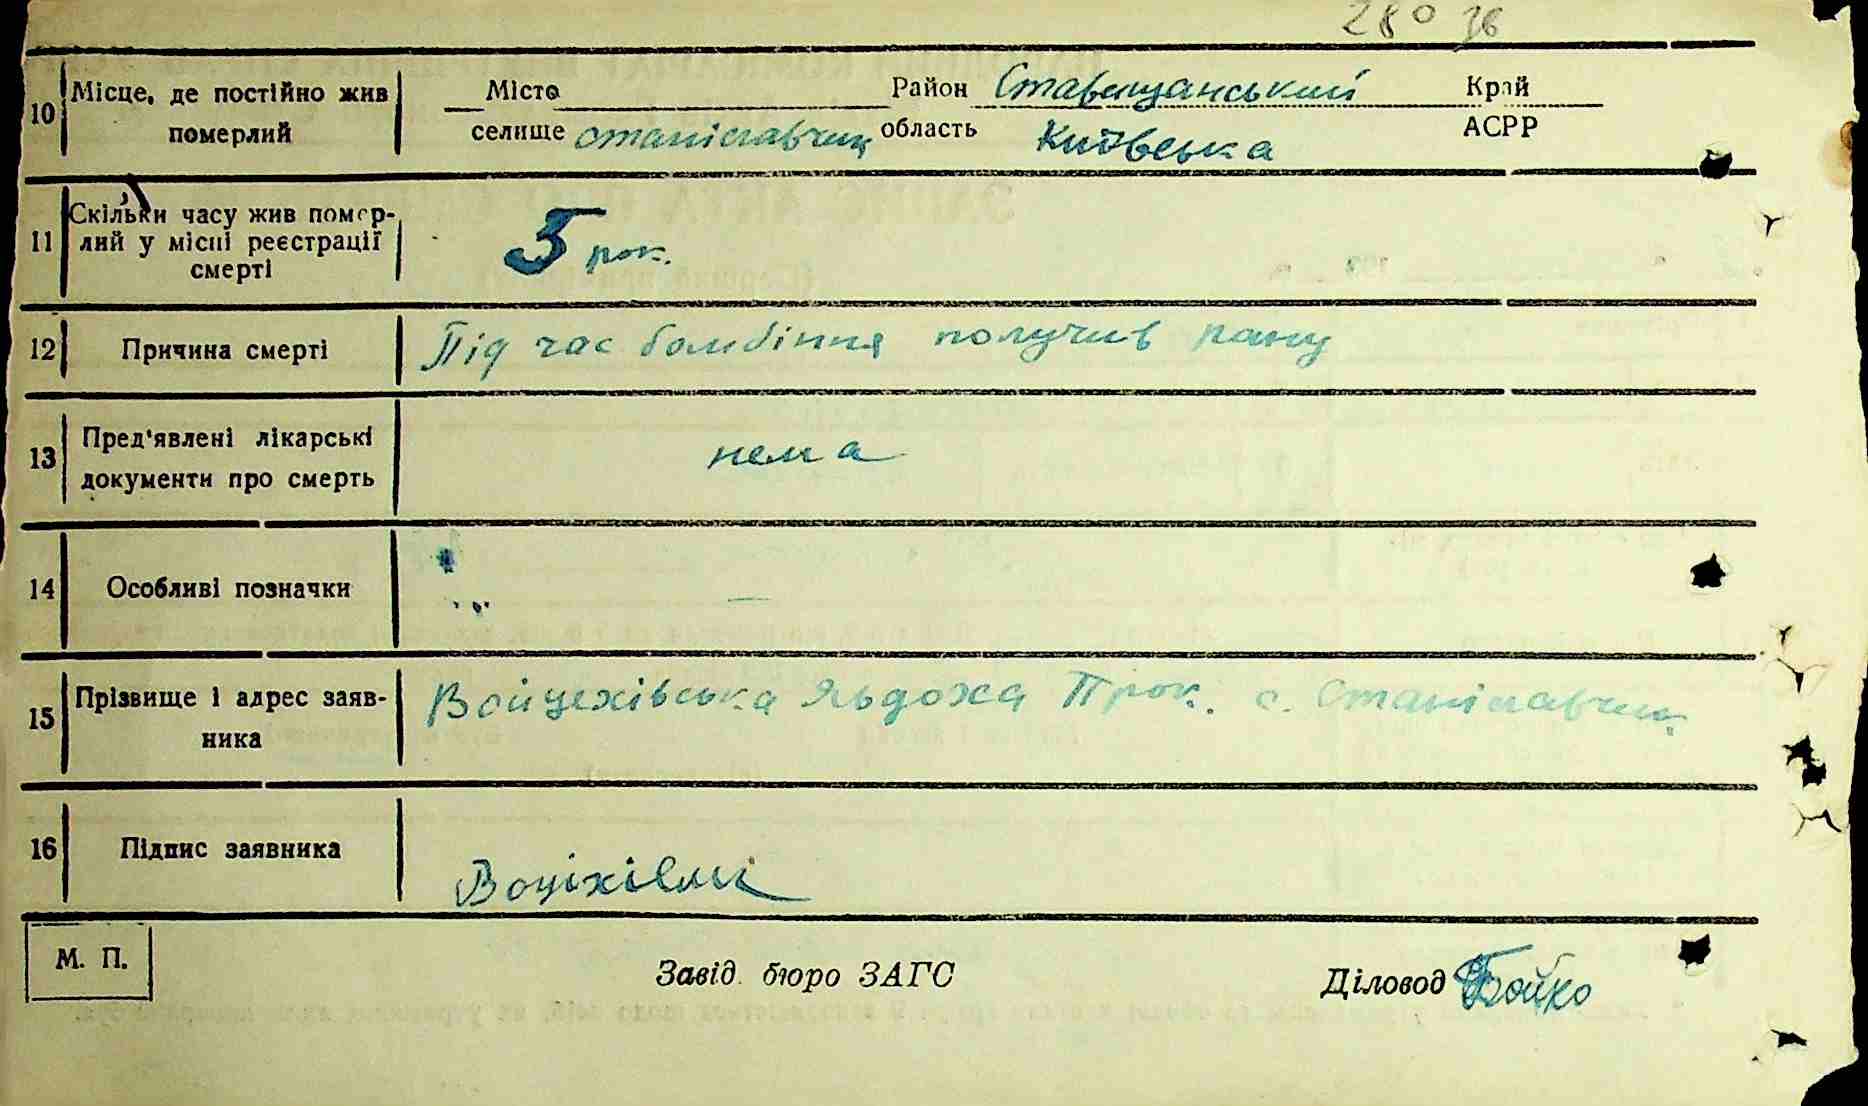 280 зв
10 Місце, де постійно жив померлий Місто Район Ставищанський Край
селище станіславчик область Київська АСРР
11 Скільки часу жив помер-
лий у місці реєстрації
смерті
5 рок.
12 Причина смерті Під час бомбіння получив рану
13 Пред'явлені лікарські
документи про смерть
нема
14 Особливі позначки —
15 Прізвище і адрес заяв-
ника
Войцехівська Яльдоха Прок. с. Станіславчик
16 Підпис заявника
М. П.
Завід. бюро ЗАГС Діловод Бойко